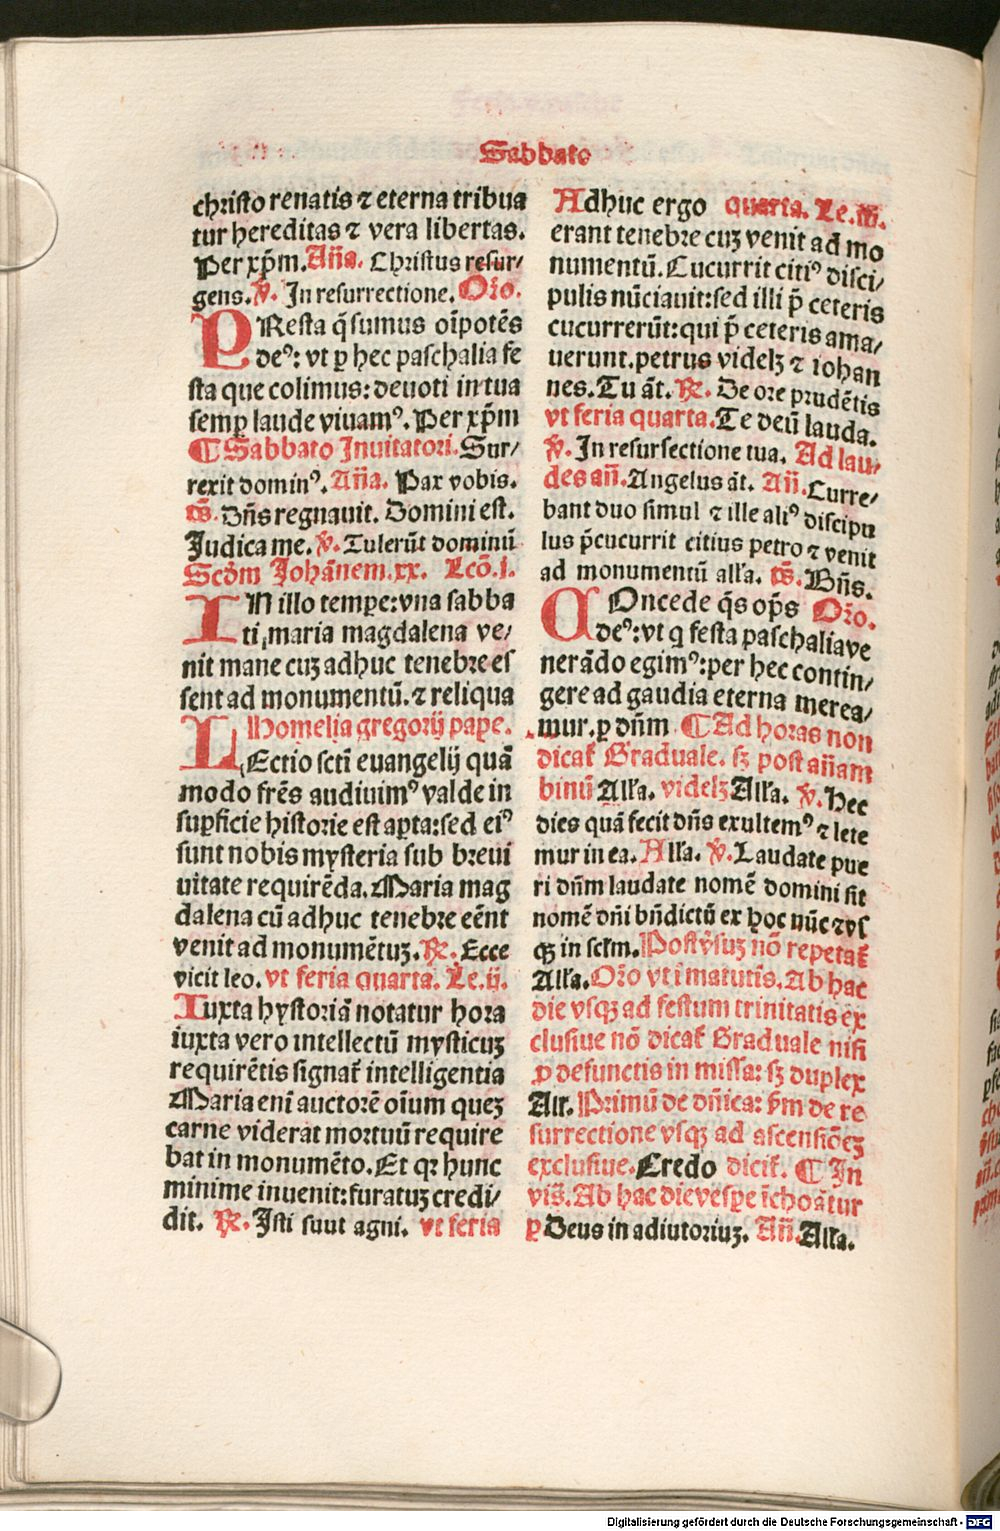 Sabbato
christo renatis ⁊ eterna tribua
tur hereditas ⁊ vera libertas.
Per xp̄m. Añā. Christus resur/
gens. v̄. In resurrectione. Oro.
PResta q̄sumus oīpotēs
deꝰ: vt ꝑ hec paschalia fe
sta que colimus: deuoti in tua
semꝑ laude viuamꝰ. Per xp̄m
¶ Sabbato Inuitatori. Sur/
rexit dominꝰ. Añā. Pax vobis.
p̄s. Dñs regnauit. Domini est.
Judica me. v̄. Tulerūt dominū
Scd̄m Johānem.xx. Lcō.i.
IN illo tempe: vna sabba
ti, maria magdalena ve/
nit mane cuꝫ adhuc tenebre es
sent ad monumentū. ⁊ reliqua
Homelia gregorij pape.
LEctio scti euangelij quā
modo frēs audiuimꝰ valde in
suꝑficie historie est aꝑta: sed eiꝰ
sunt nobis mysteria sub breui
uitate requirēda. Maria mag
dalena cū adhuc tenebre eēnt
venit ad monumētuꝫ. ꝶ. Ecce
vicit leo. vt feria quarta. Le.ij.
Iuxta hystoriā notatur hora
iuxta vero intellectū mysticuꝫ
requirētis signat̄ intelligentia
Maria eni auctorē oium queꝫ
carne viderat mortuū require
bat in monumēto. Et qꝛ hunc
minime inuenit: furatuꝫ credi/
dit. ꝶ. Isti suut agni. vt feria
Adhuc ergo quarta. Le.iij.
erant tenebre cuꝫ venit ad mo
numentū. Cucurrit citiꝰ disci/
pulis nūciauit: sed illi p̄ ceteris
cucurrerūt: qui p̄ ceteris ama/
uerunt. petrus videlꝫ ⁊ iohan
nes. Tu āt. ꝶ. De ore prudētis
vt feria quarta. Te deū lauda.
v̄. In resursectione tua. Ad lau/
des añ. Angelus āt. Añ. Curre/
bant duo simul ⁊ ille aliꝰ discipu
lus p̄cucurrit citius petro ⁊ venit
ad monumentū alła. p̄s. Bñs.
COncede q̄s op̄s Oro.
deꝰ: vt q festa paschalia ve
nerādo egimꝰ: per hec contin/
gere ad gaudia eterna merea/
mur. ꝑ dñm ¶ Ad horas non
dicat̄ Graduale. sꝫ post añam
binū Alła. videlꝫ Alła. v̄. Hec
dies quā fecit dñs exultemꝰ ⁊ lete
mur in ea. Alła. v̄. Laudate pue
ri dñm laudate nomē domini sit
nomē dñi bñdictū ex hoc nūc ⁊vs
qꝫ in sclm. Post v̄suꝫ nō repetat̄
Alła. Oro vt i matutīs. Ab hac
die vsqꝫ ad festum trinitatis ex
clusiue nō dicat̄ Graduale nisi
ꝓ defunctis in missa: sꝫ duplex
Alł. Primū de dñica: s̄m de re
surrectione vsqꝫ ad ascensiōeꝫ
exclusiue. Credo dicit̄. ¶ In
vis̄. Ab hac die vesꝑe īchoātur
ꝑ Deus in adiutoriuꝫ. Añ. Alła.
Digitalisierung gefördert durch die Deutsche Forschungsgemeinschaft - DFG